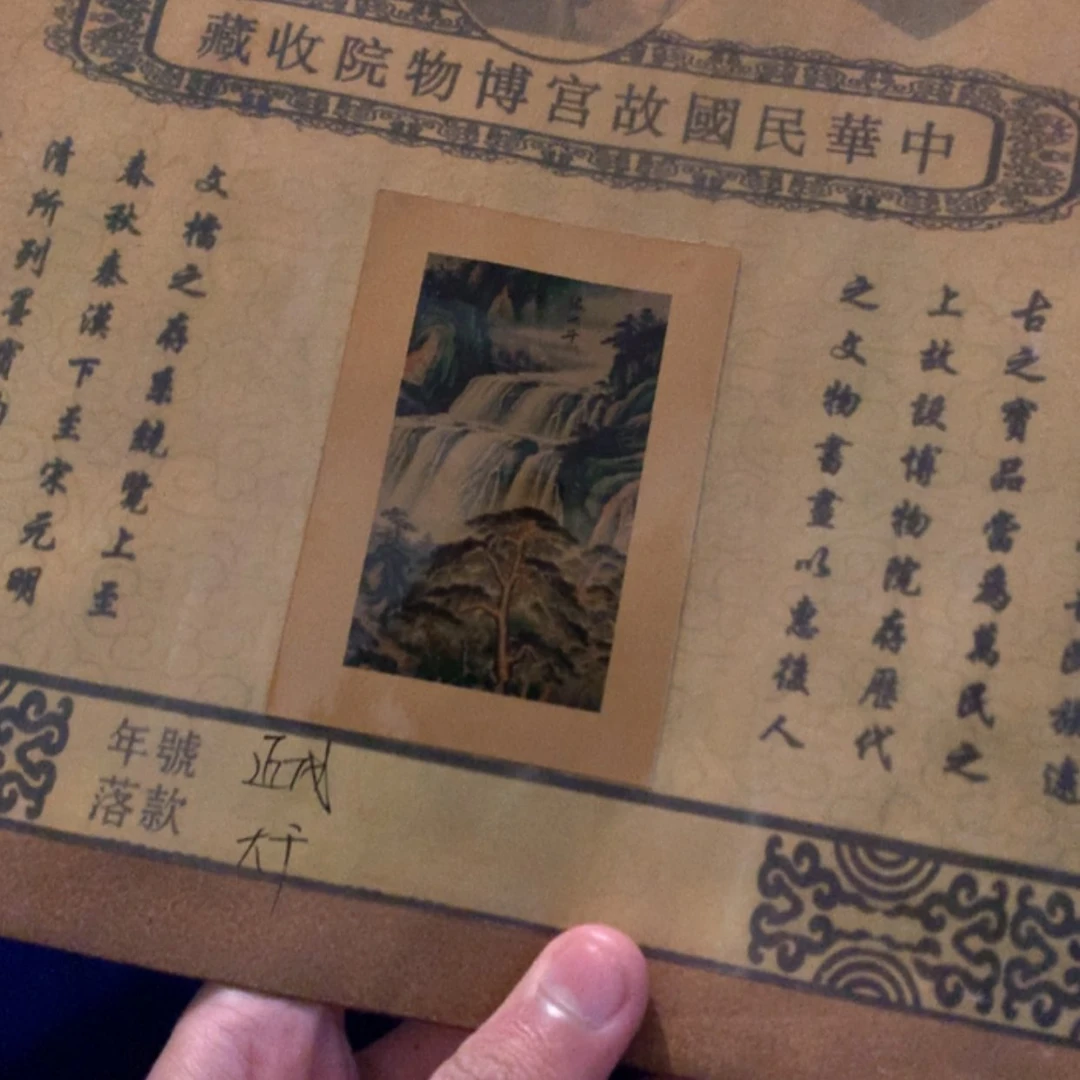 中華民國故宫博物院收藏
古之寶品當為萬民之
上故設博物院存歷代
之文物書畫以惠後人
文檔之存系統覽上至
春秋秦漢下至宋元明
清所列墨寶
年號 近代
落款 大千